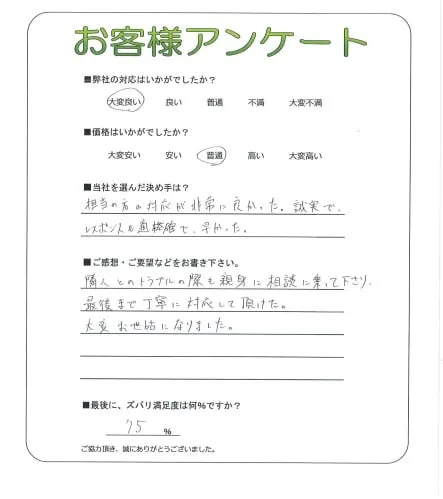 お客様アンケート
■弊社の対応はいかがでしたか?
大変良い 良い 普通 不満 大変不満
■価格はいかがでしたか?
大変安い 安い 普通 高い 大変高い
■当社を選んだ決め手は?
担当の方の対応が非常に良かった。誠実で、
レスポンスも適格で、早かった。
■ご感想・ご要望などをお書き下さい。
隣人とのトラブルの際も親身に相談に乗って下さり、
最後まで丁寧に対応して頂けた。
大変お世話になりました。
■最後に、ズバリ満足度は何%ですか?
75 %
ご協力頂き、誠にありがとうございました。